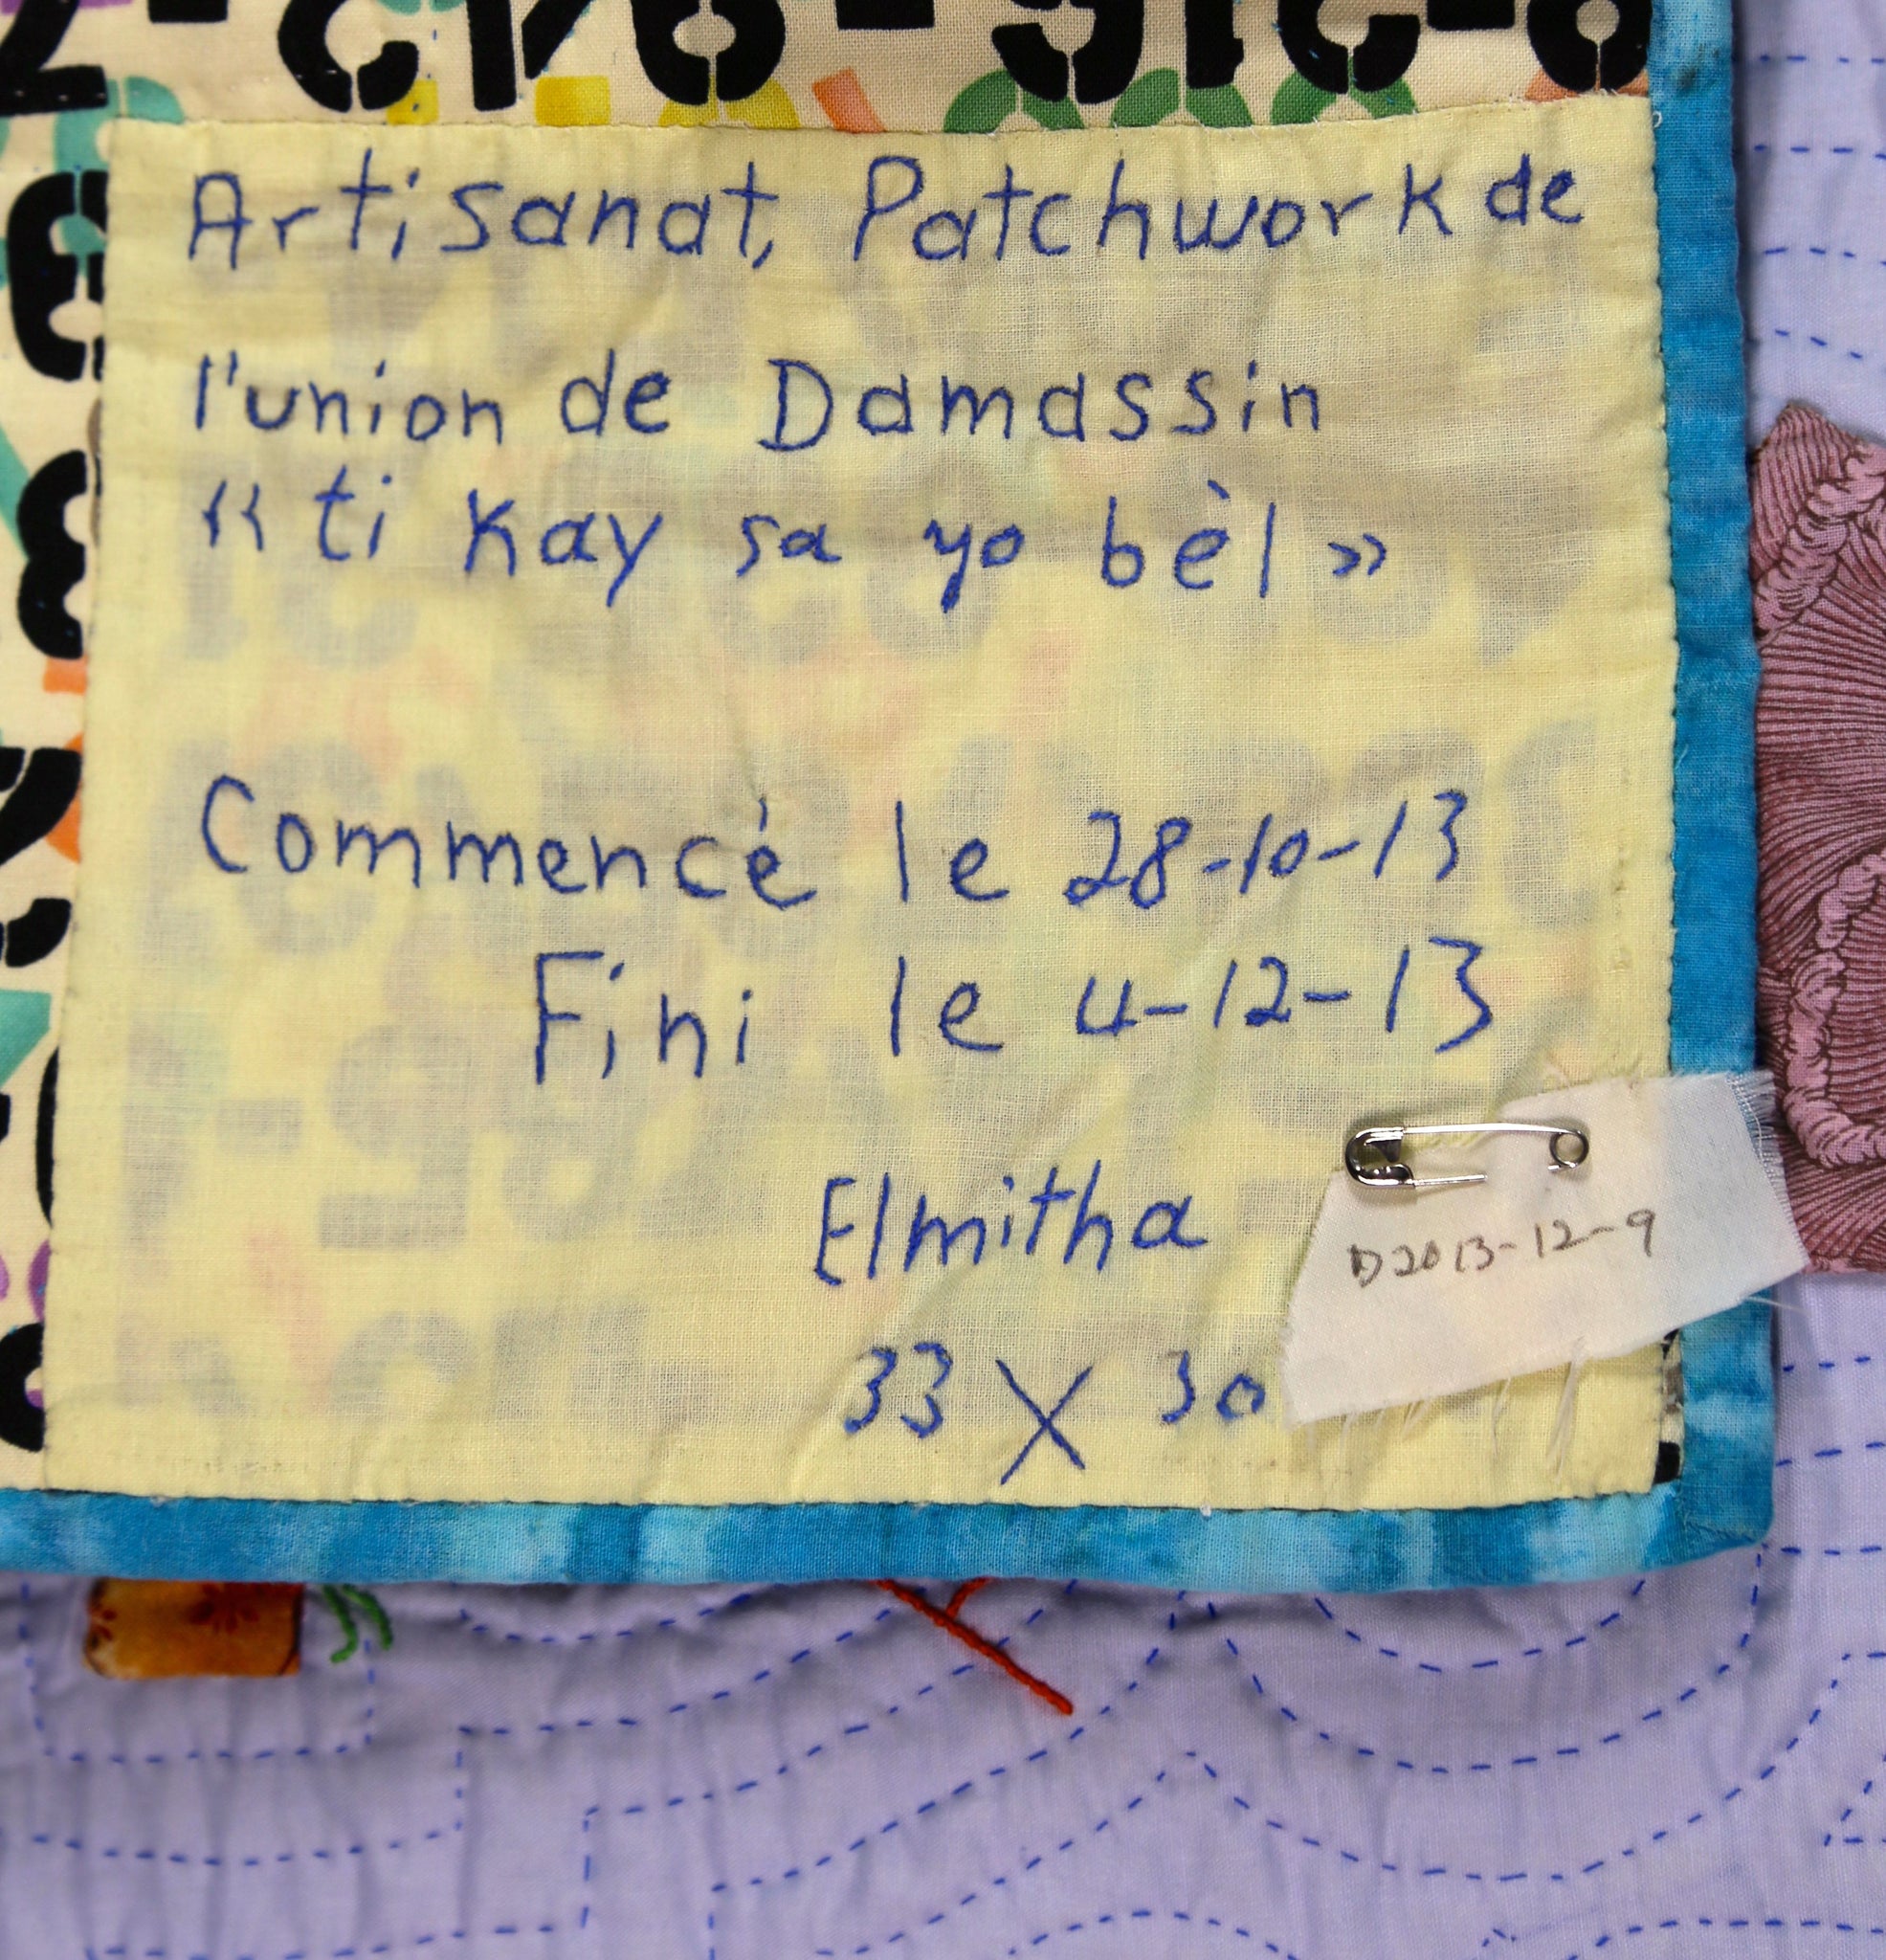 Artisanat, Patchwork de
l'union de Damassin
« ti kay sa yo bèl »
Commencé le 28-10-13
Fini le 4-12-13
Elmitha
D2013-12-9
33 X 30